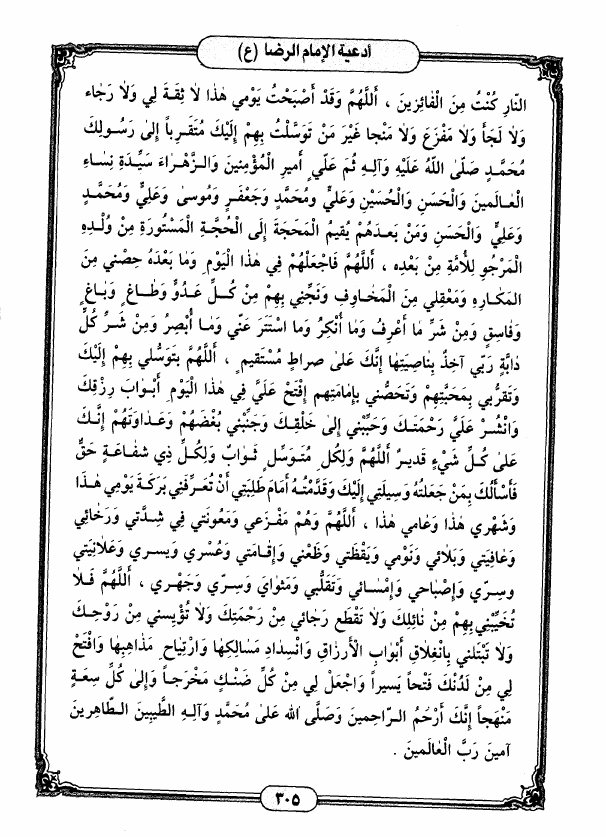 أدعية الإمام الرضا (ع)
النّارِ كُنْتُ مِنَ الْفائِزينَ ، أَللّهُمَّ وَقَدْ أَصْبَحْتُ يَوْمي هٰذا لا ثِقَةَ لي وَلا رَجاءَ
وَلا لَجَأَ وَلا مَفْزَعَ وَلا مَنْجا غَيْرَ مَنْ تَوَسَّلْتُ بِهِمْ إِلَيْكَ مُتَقَرِّباً إِلى رَسُولِكَ
مُحَمَّدٍ صَلّى اللّهُ عَلَيْهِ وَآلِهِ ثُمَّ عَلَي أَميرِ المُؤْمِنينَ وَالزَّهْراءَ سَيِّدَةِ نِساءِ
الْعالَمينَ وَالْحَسَنِ وَالْحُسَيْنِ وَعَلِيٍّ ومُحَمَّدٍ وَجَعْفَرٍ وَمُوسىٰ وَعَلِيٍّ وَمُحَمَّدٍ
وَعَلِيٍّ وَالْحَسَنِ وَمَنْ بَعدَهُمْ يُقيمُ الْمَحَجَةَ إِلَى الْحُجَّةِ الْمَسْتُورَةِ مِنْ وُلْدِهِ
الْمَرْجُو لِلأُمَّةِ مِنْ بَعْدِه ، أَللّهُمَّ فَاجْعَلْهُمْ في هٰذَا الْيَوْمِ وَما بَعْدَهُ حِصْني مِنَ
المَكارِهِ وَمَعْقِلي مِنَ الْمَخاوِفِ وَنَجِّني بِهِمْ مِنْ كُلِّ عَدُوٍّ وَطاغٍ وَباغٍ
وَفاسِقٍ وَمِنْ شَرِّ ما أَعْرِفُ وَما أُنْكِرُ وَما اسْتَتَرَ عَنّي وَما أُبْصِرُ وَمِنْ شَرِّ كُلِّ
دابَّةٍ رَبّي آخِذٌ بِناصِيَتِها إِنَّكَ عَلىٰ صراطٍ مُسْتَقيمٍ ، أَللّهُمَّ بِتَوَسُّلي بِهِمْ إِلَيْكَ
وَتَقَرُّبي بِمَحَبَّتِهِمْ وَتَحَصُّني بِإِمامَتِهِم إِفْتَحْ عَلَيَّ في هٰذَا الْيَوْمِ أَبْوابَ رِزْقِكَ
وَانْشُرْ عَلَيَّ رَحْمَتَكَ وَحَبِّبْني إِلىٰ خَلْقِكَ وَجَنِّبْني بُغْضَهُمْ وَعَداوَتَهُمْ إِنَّكَ
عَلىٰ كُلِّ شَيْءٍ قَديرٌ أَللّهُمَّ وَلِكُلِّ مُتَوَسِّلٍ ثَوابٌ وَلِكُلِّ ذي شَفاعَةٍ حَقٌّ
فَأَسْأَلُكَ بِمَنْ جَعَلْتُهُ وَسيلَتي إِلَيْكَ وَقَدَّمْتُهُ أَمامَ طَلِبَتي أَنْ تُعَرِّفَني بَرَكَةَ يَوْمي هٰذا
وَشَهْري هٰذا وَعامي هٰذا ، أَللّهُمَّ وَهُمْ مَفْزَعي وَمَعُونَتي في شِدَّتي وَرَخائي
وَعافِيَتي وَبَلائي وَنَوْمي وَيَقْظَتي وَظَعْني وَإِقامَتي وَعُسْري وَيسري وَعَلانِيَتي
وسِرّي وَإِصْباحي وَإِمْسائي وَتَقَلُّبي وَمَثْوايَ وَسِرّي وَجَهْري ، أَللّهُمَّ فَلا
تُخَيِّبْني بِهِمْ مِنْ نائِلِكَ وَلا تَقْطَع رَجائي مِنْ رَحْمَتِكَ وَلا تُؤْيسني مِنْ رَوْحِكَ
وَلا تَبْتَلني بِانْغِلاقِ أَبْوابِ الأَرزاقِ وَانْسِدادِ مَسالِكِها وَارْتِياحِ مَذاهِبِها وَافْتَحْ
لي مِنْ لَدُنْكَ فَتْحاً يَسيراً وَاجْعَل لي مِنْ كُلِّ ضَنْكٍ مَخْرَجاً وَإِلىٰ كُلِّ سِعَةٍ
مَنْهَجاً إِنَّكَ أَرْحَمُ الرّاحِمينَ وَصَلَّى الله عَلىٰ مُحَمَّدٍ وَآلِهِ الطَّيِّبينَ الطّاهِرينَ
آمينَ رَبَّ الْعالَمينَ .
٣٠٥